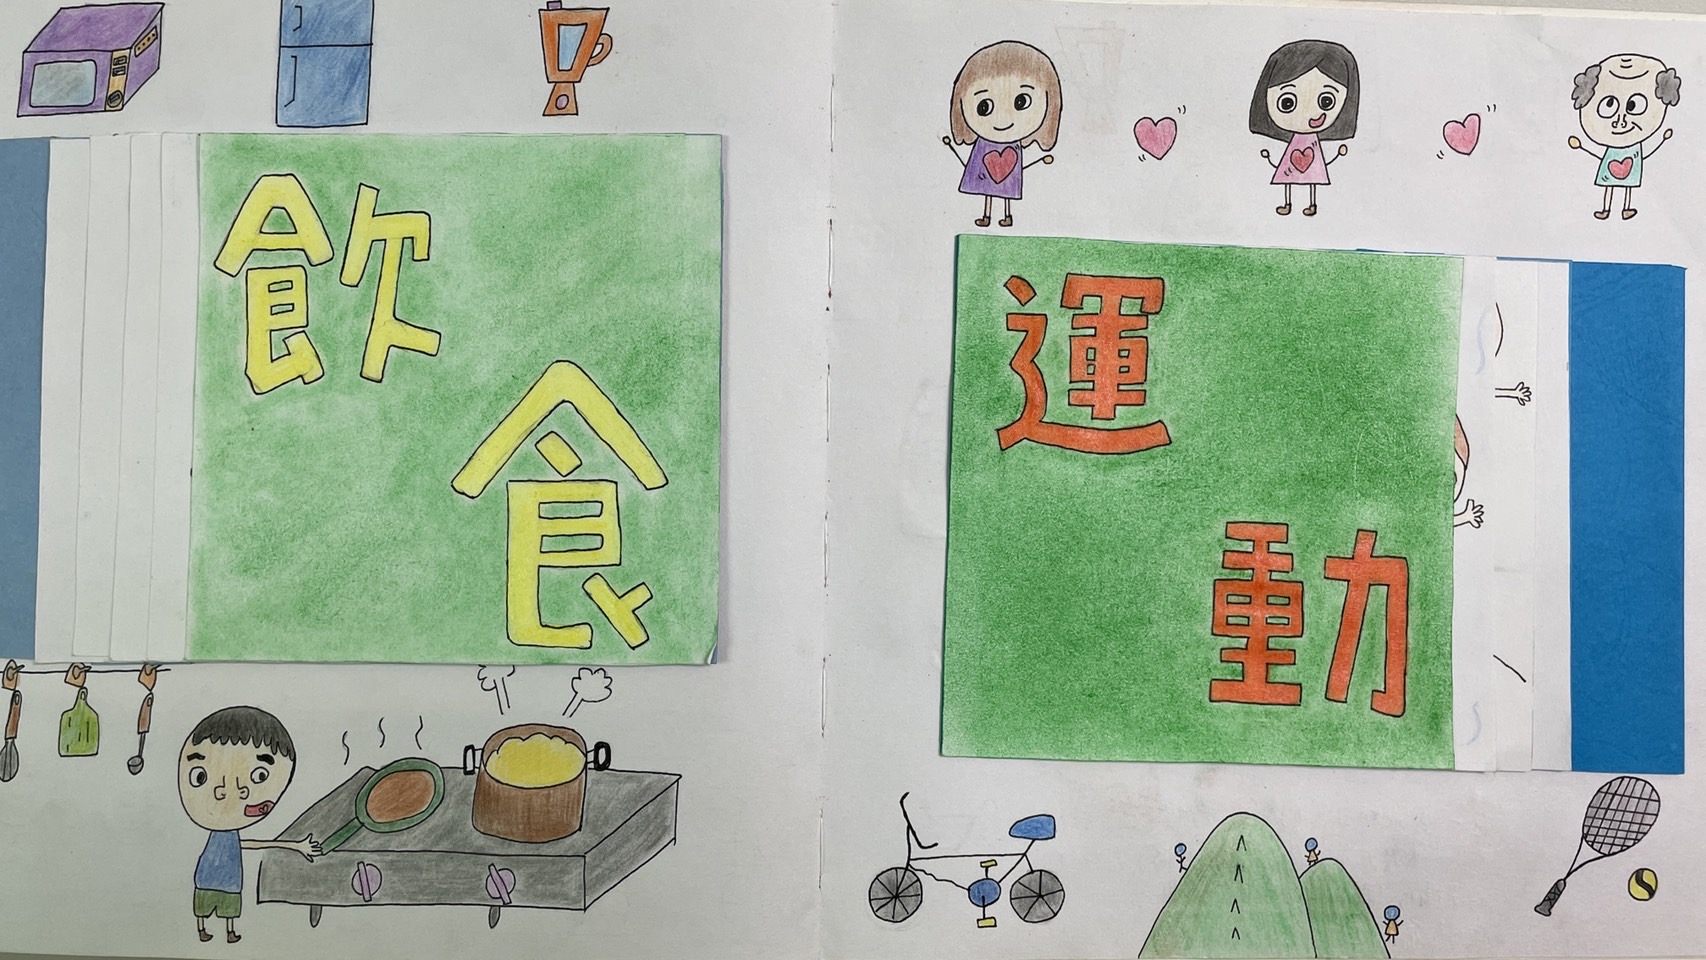 飲食
運動